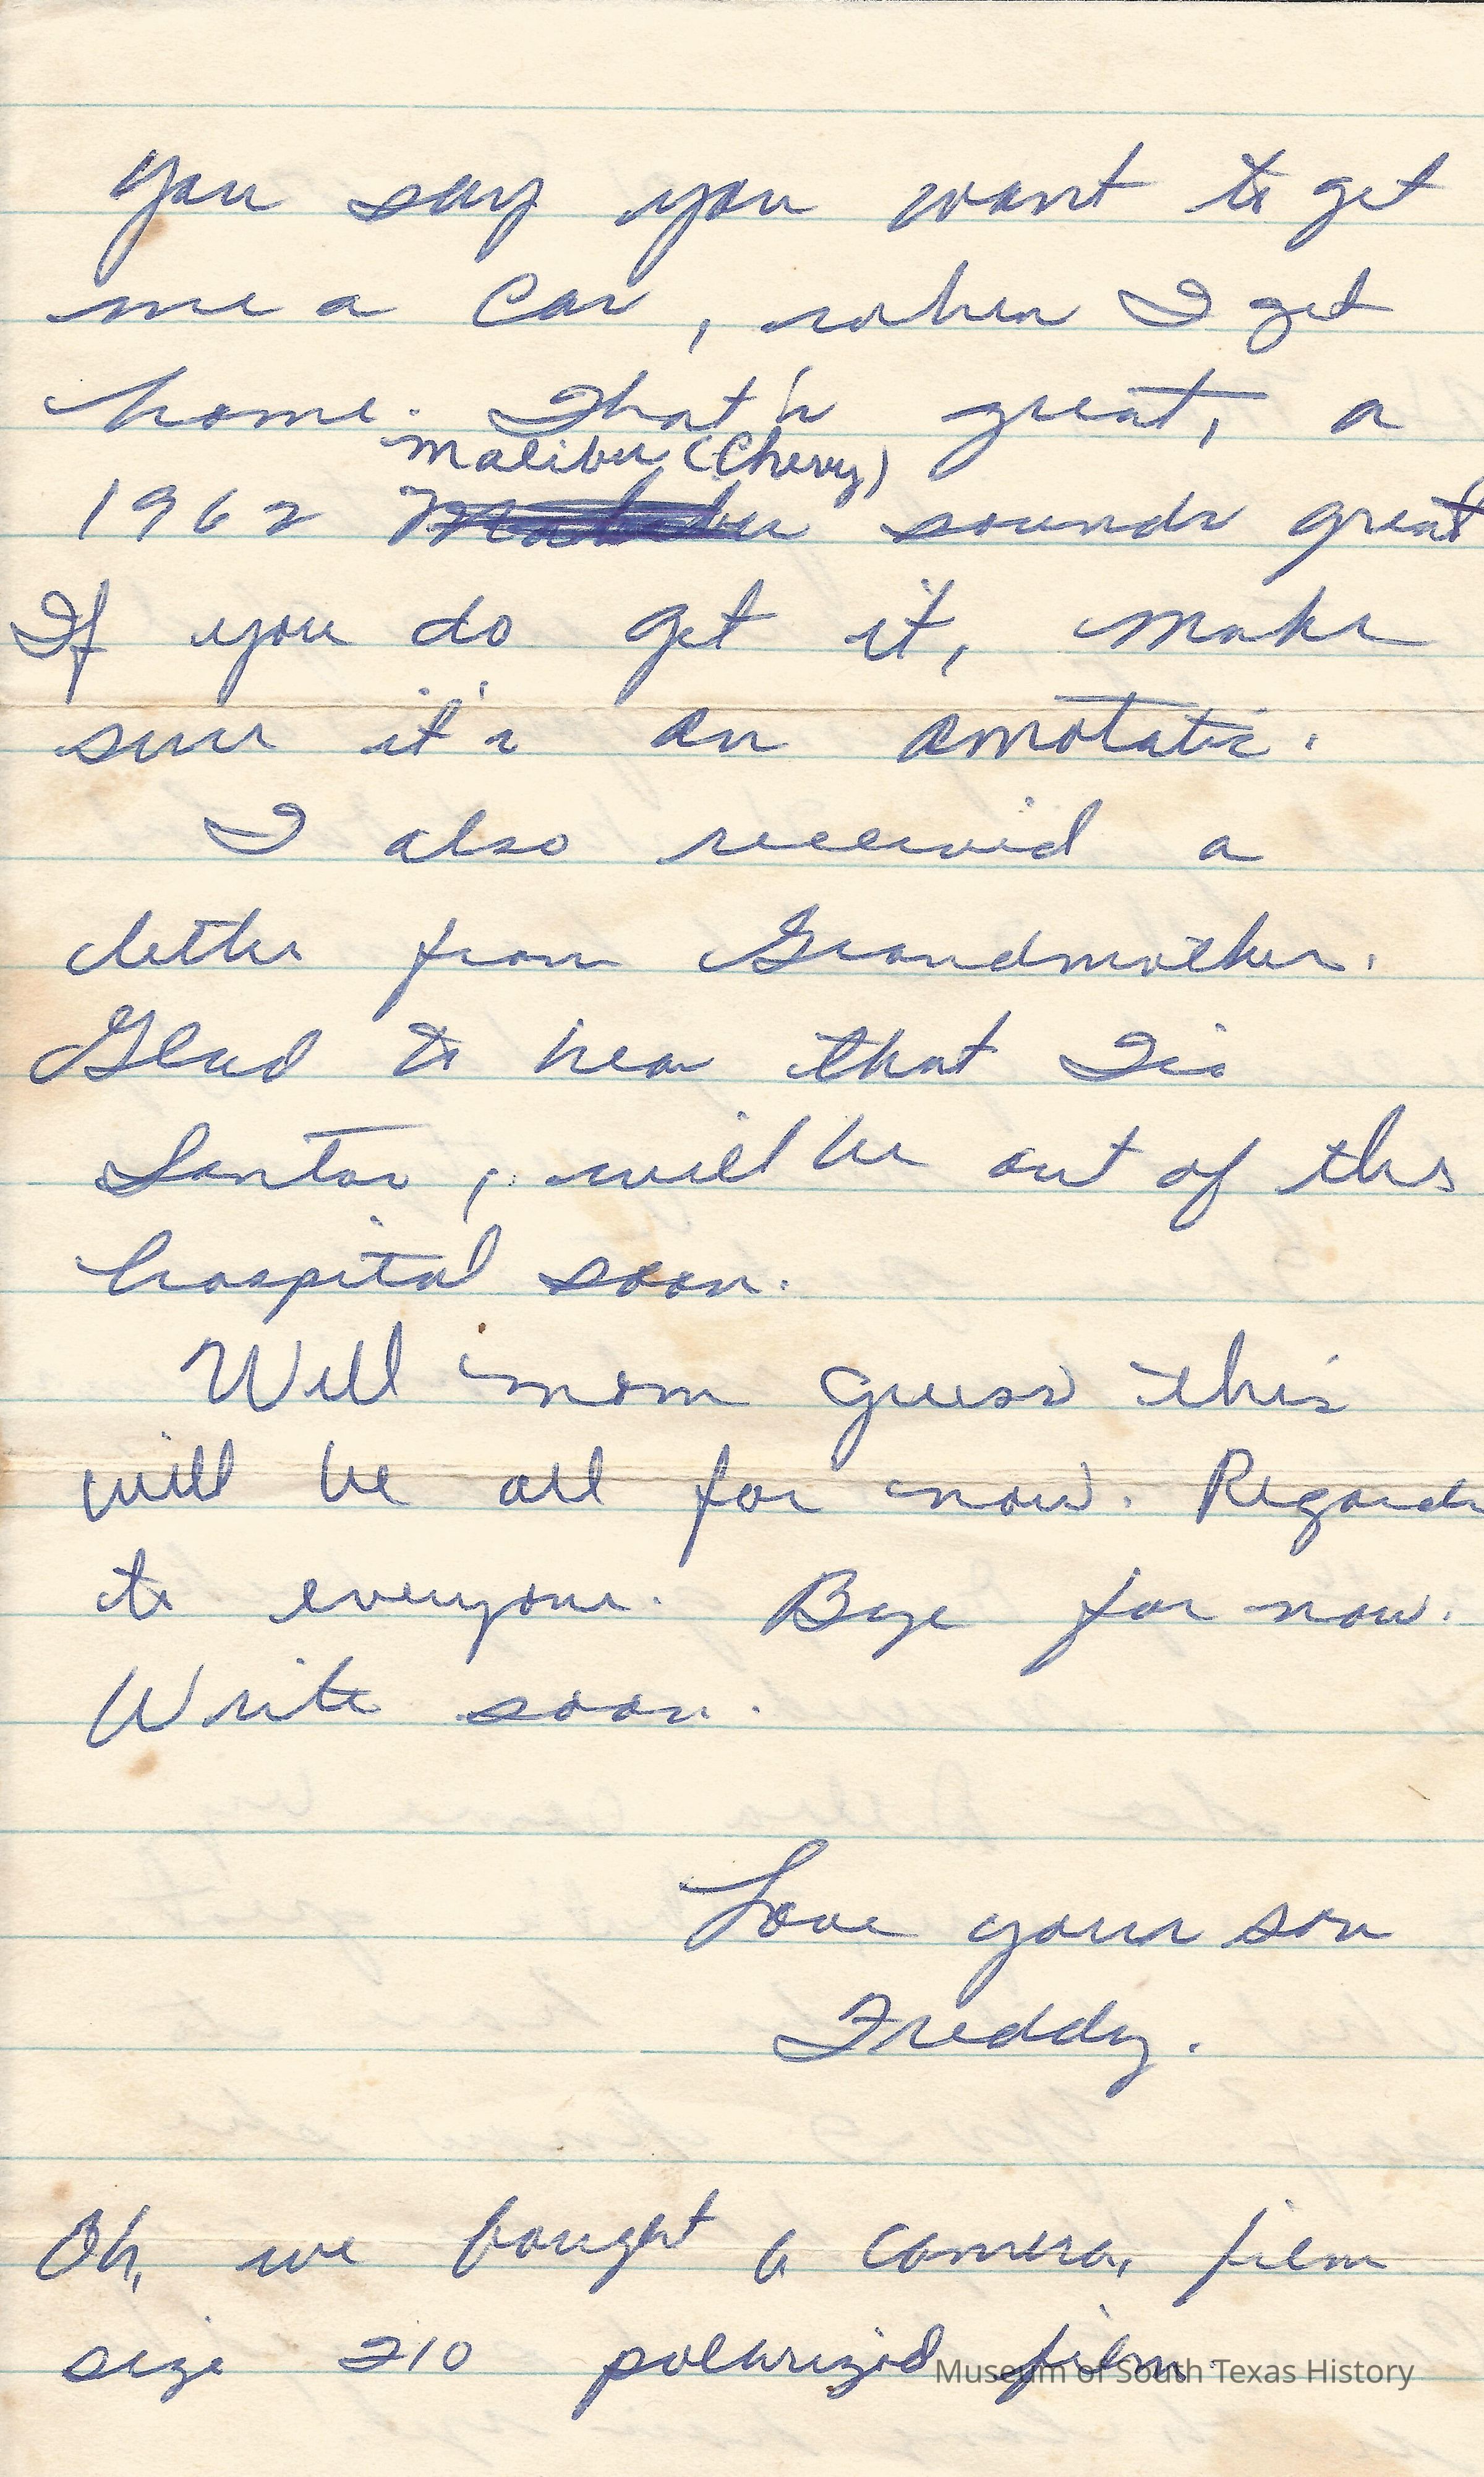 You say you want to get
me a car, when I get
home. That's great, a
Malibu (Chevy)
1962 sounds great
If you do get it, make
sure it's an amotatic.
I also received a
letter from Grandmother.
Glad to hear that Tio
Santos, will be out of the
hospital soon.
Well mom guess this
will be all for now. Regards
to everyone. Bye for now.
Write soon.
Love your son
Freddy.
Oh, we bought a camera, film
size 210 polarized film.
Museum of South Texas History